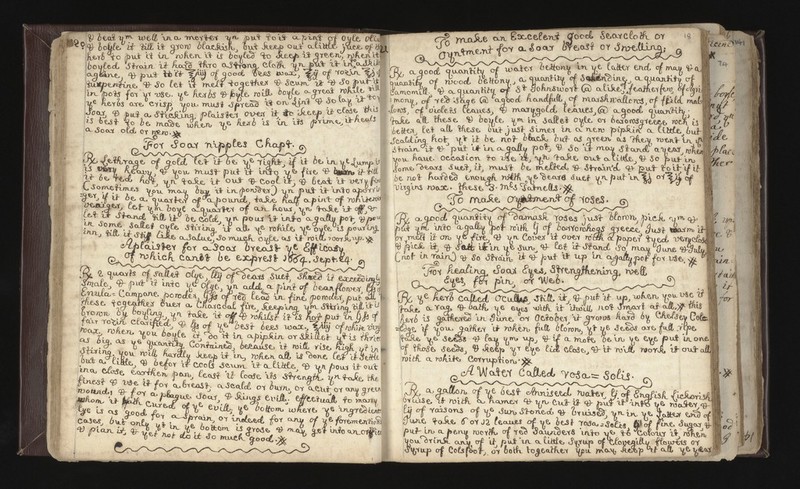 & beat ym well in a morter yn put to it a pint of oyle olive
& boyle it till it grow blackish, but keep out a little juce of
herb to put it in when it is boyled to keep it green, when it is
boyled strain it hard thro a strong cloth yn put it in a skil
againe, & put to it of good bees wax, of rosin
turpentine & so let it melt together & scum it & so put it
in pots for yr use. ye herbs & oyle will boyle a great while till
ye herbs are crisp you must spread it on lint & so lay it to ye
soar, & put a sticking plaister over it to keep it close this
is best to be made when ye herb is in its prime, it heals
a soar old or new.
For Soar nipples Chapt.
Rx lethrage of gold let it be ye right, if it be in ye lump it
is very heavy, & you must put it into ye fire & till
it be red hot, yn take it out & cool it, & beat it very fine
(sometimes you may buy it in powder) yn put it into a pipkin
ger, if it be a quarter of a pound, take half a pint of whitewine
veniger, let yn boyl a quarter of an hour, yn take it off
let it stand till it be cold, yn pous it into a gally pot, & pour
in some sallet oyle stiring it all ye while ye oyle is pouring
inn, till it stiff like a salve, so much oyle as it will work up.
A plaister for a Soar breast ye Efficasy
of which canot be exprest 1664. Sept: 24.
Rx 2 quarts of sallet olye, of dears suet, shred it exceedingly
smale, & put it into ye olye, yn add a pint of beanflower,
of red lead in fine powder, put all
these together over a Charcoal fire, keeping ym stiring till it be
brown by boyling, yn take it off & whilst it is hot put in
fair rosin clarified, & of ye best bees wax, of white virgin
wax, when you boyle it do it in a pipkin or skillet yt is thrice
as big, as ye quantity Contained, because it will rise high yt in ye
stiring, you will hardly keep it in, when all is done let it settle
but a little, & befor it cool scum it a little, & yn pous it out
in a close earthen pan, least it loose its strength yn take the
finest & use it for a breast, a scald or burn, or acut or any green
wounds & for a plague soar, & kings evill, effectuall to many
whom it hath cured of ye evill, ye bottom where ye ingredients
lye is as good for a sprain or indeed for any of ye forementioned
cases, but only yt in ye bottom is grose & may get into an orifice
& pian it, & yet not do it so much good.
18
To make an Excelent good Searcloth or
Oyntment for a Soar Breast or Swelling;
Rx a good quantity of water bettony in ye latter end of may & a
quantity of wood bettony, a quantity of Salendine, a quantity of
Camomill, & a quantity of St Johnswort @ alike, featherfew, of agri-
mony, of red stage @ a good handfull, of marshmallows, of fkild mal-
lows, of violets leaves, & marygold leaves @ a good quantity
take all these & boyle ym in sallet oyle or barrowsgreece wch is
better, let all these but just simer in a new pipkin a little but
scalding hot, yt it be not black but as green as they went in yn
strain it & put it in a gally pot, & so it may stand a year, when
you have occasion to use it, yn take out a little, & so put in
some Dears suet, it must be melted & strain'd & put to it if it
be not harded enough with ye dears suet yn put in or of
virgins wax. these 3 Mrs Samells.
To make oyntment of roses.
Rx a good quantity of damask roses just blown, pick ym &
put ym into a gally pot with of barrowhogs greece, just warm it
or melt it on ye fire, & yn Cover it over with a paper tyed very close
& pick it, & sett it in ye sun, & let it stand so may June & July
(not in rain) & so strain it & put it up in a gally pot for use.
For healing Soar Eyes, Strengthening, well
Eyes for pin, or Web.
Rx ye herb called Oculus, still it, & put it up, when you use it
take a rag, & bath ye eyes with it it will not smart at all, this
herb is gathered in June or October it grows hard by Chelsey Col-
edge if you gather it when full blown, yt ye seeds are full ripe
take ye seeds & lay ym up, & if a mote be in ye eye put in one
of those seeds, & keep yr eye lid close, & it will work it out all
with a white Corruption.
A Water Called rosa=Solis.
Rx A gallon of ye best Anniseed water, of English lickorish
bruise it with a hamer & yn cut it & put it into ye water, &
of raisons of ye sun stoned & bruised, yn in ye latter end of
June take 6 or 12 leaves of ye best rosa-Solis, of fine sugar &
put in a peny worth of red Saunders into ye to Colour it, when
you drink any of it, put in a little Syrup of Clovegilly flowers or
Syrup of Colsfoot, or both together you may keep it all ye year